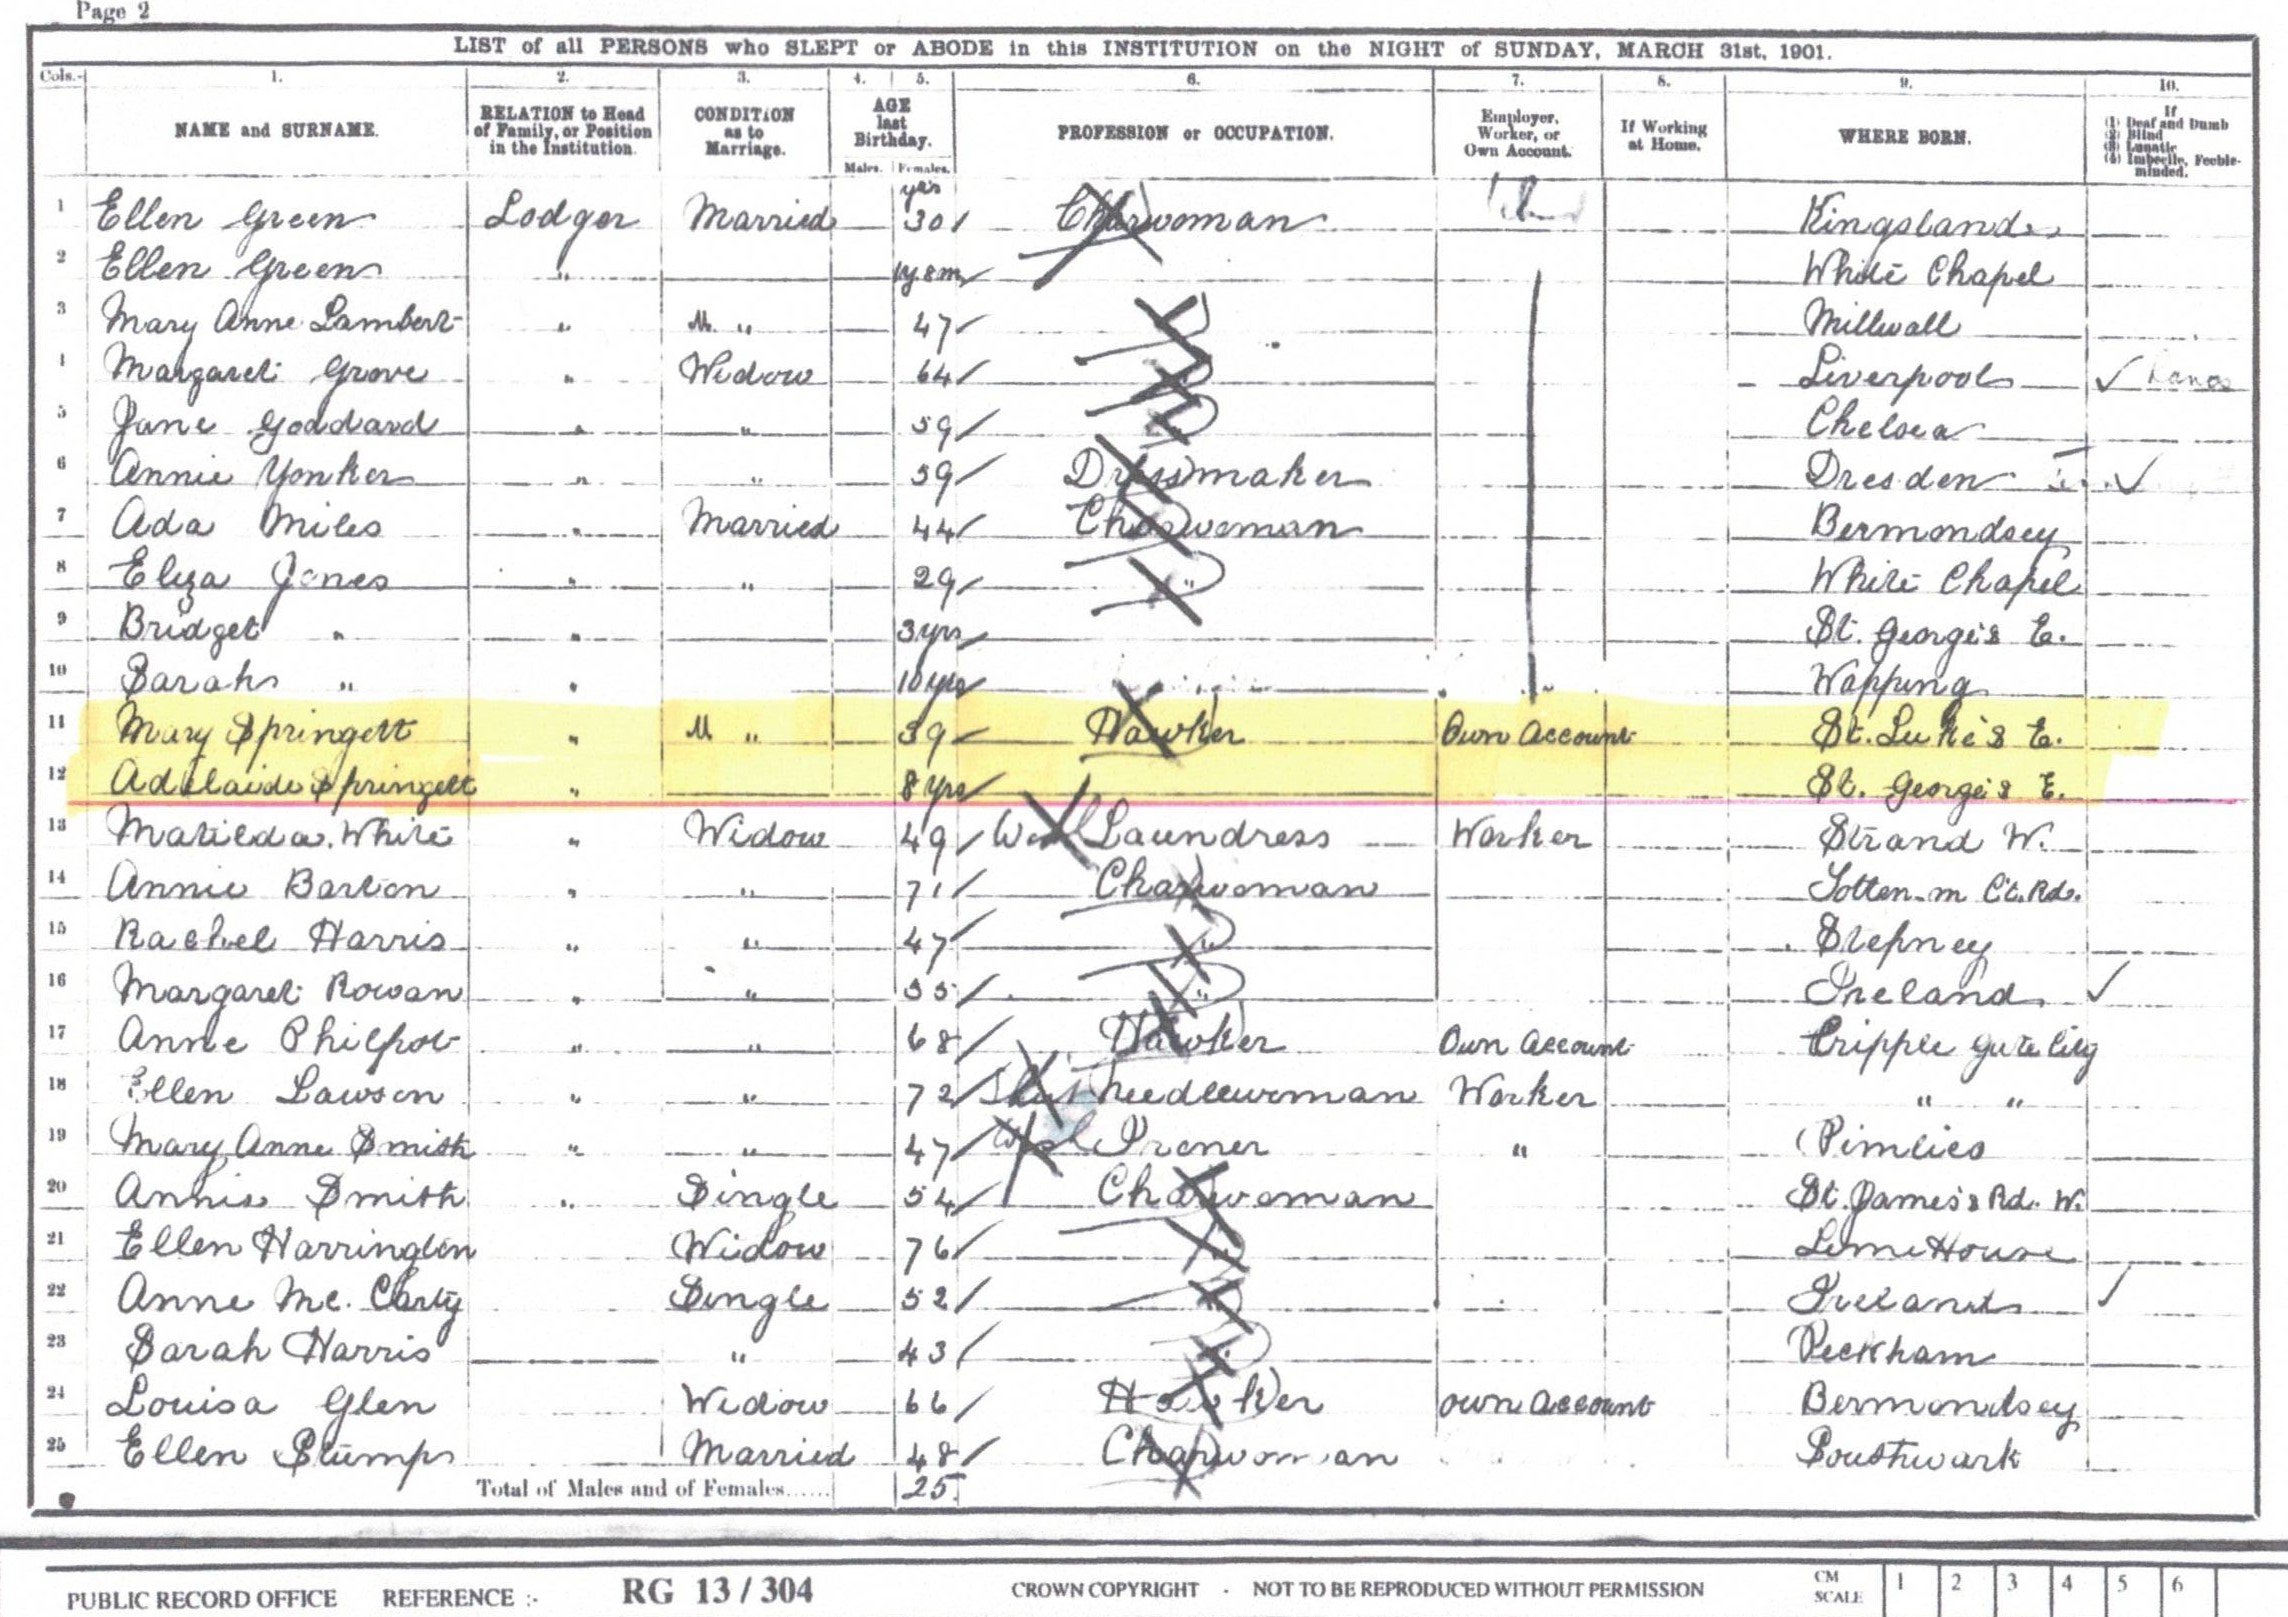 Page 2
LIST of all PERSONS who SLEPT or ABODE in this INSTITUTION on the NIGHT of SUNDAY, MARCH 31st, 1901.
Cols.- 1. 2. 3. 4. 5. 6. 7. 8. 9. 10.
NAME and SURNAME. RELATION to Head of Family, or Position in the Institution. CONDITION as to Marriage. AGE last Birthday. Males. Females. PROFESSION or OCCUPATION. Employer, Worker, or Own Account. If Working at Home. WHERE BORN. If (1) Deaf and Dumb (2) Blind (3) Lunatic (4) Imbecile, Feeble-minded.
yrs
1 Ellen Green Lodger Married 30 Charwoman Kingsland
2 Ellen Green " 1y 8m White Chapel
3 Mary Anne Lambert " M. " 47 " Millwall
4 Margaret Grove " Widow 64 " Liverpool
5 Jane Goddard " " 59 " Chelsea
6 Annie Yonker " " 39 Dressmaker Dresden
7 Ada Miles " Married 44 Charwoman Bermondsey
8 Eliza Jones " " 29 " White Chapel
9 Bridget " " 3 yrs St. George's E.
10 Sarah " " 10 yrs Wapping
11 Mary Springett " M " 39 Hawker Own Account St. Luke's E.
12 Adelaide Springett " 8 yrs St. George's E.
13 Matilda White " Widow 49 Laundress Worker Strand W.
14 Annie Barton " " 71 Charwoman Totten-m Ct. Rd.
15 Rachel Harris " " 47 " Stepney
16 Margaret Rowan " " 55 " Ireland
17 Anne Philpot " " 68 Hawker Own Account Cripple gate City
18 Ellen Lawson " " 72 Needlewoman Worker " "
19 Mary Anne Smith " " 47 Ironer " Pimlico
20 Annie Smith " Single 54 Charwoman St. James's Rd. W.
21 Ellen Harrington Widow 76 " Lime House
22 Anne Mc. Carty Single 52 " Ireland
23 Sarah Harris " 43 " Peckham
24 Louisa Glen Widow 66 Hawker own Account Bermondsey
25 Ellen Stumps Married 48 Charwoman Southwark
Total of Males and of Females...... 25
PUBLIC RECORD OFFICE REFERENCE :- RG 13 / 304 CROWN COPYRIGHT - NOT TO BE REPRODUCED WITHOUT PERMISSION CM SCALE 1 2 3 4 5 6